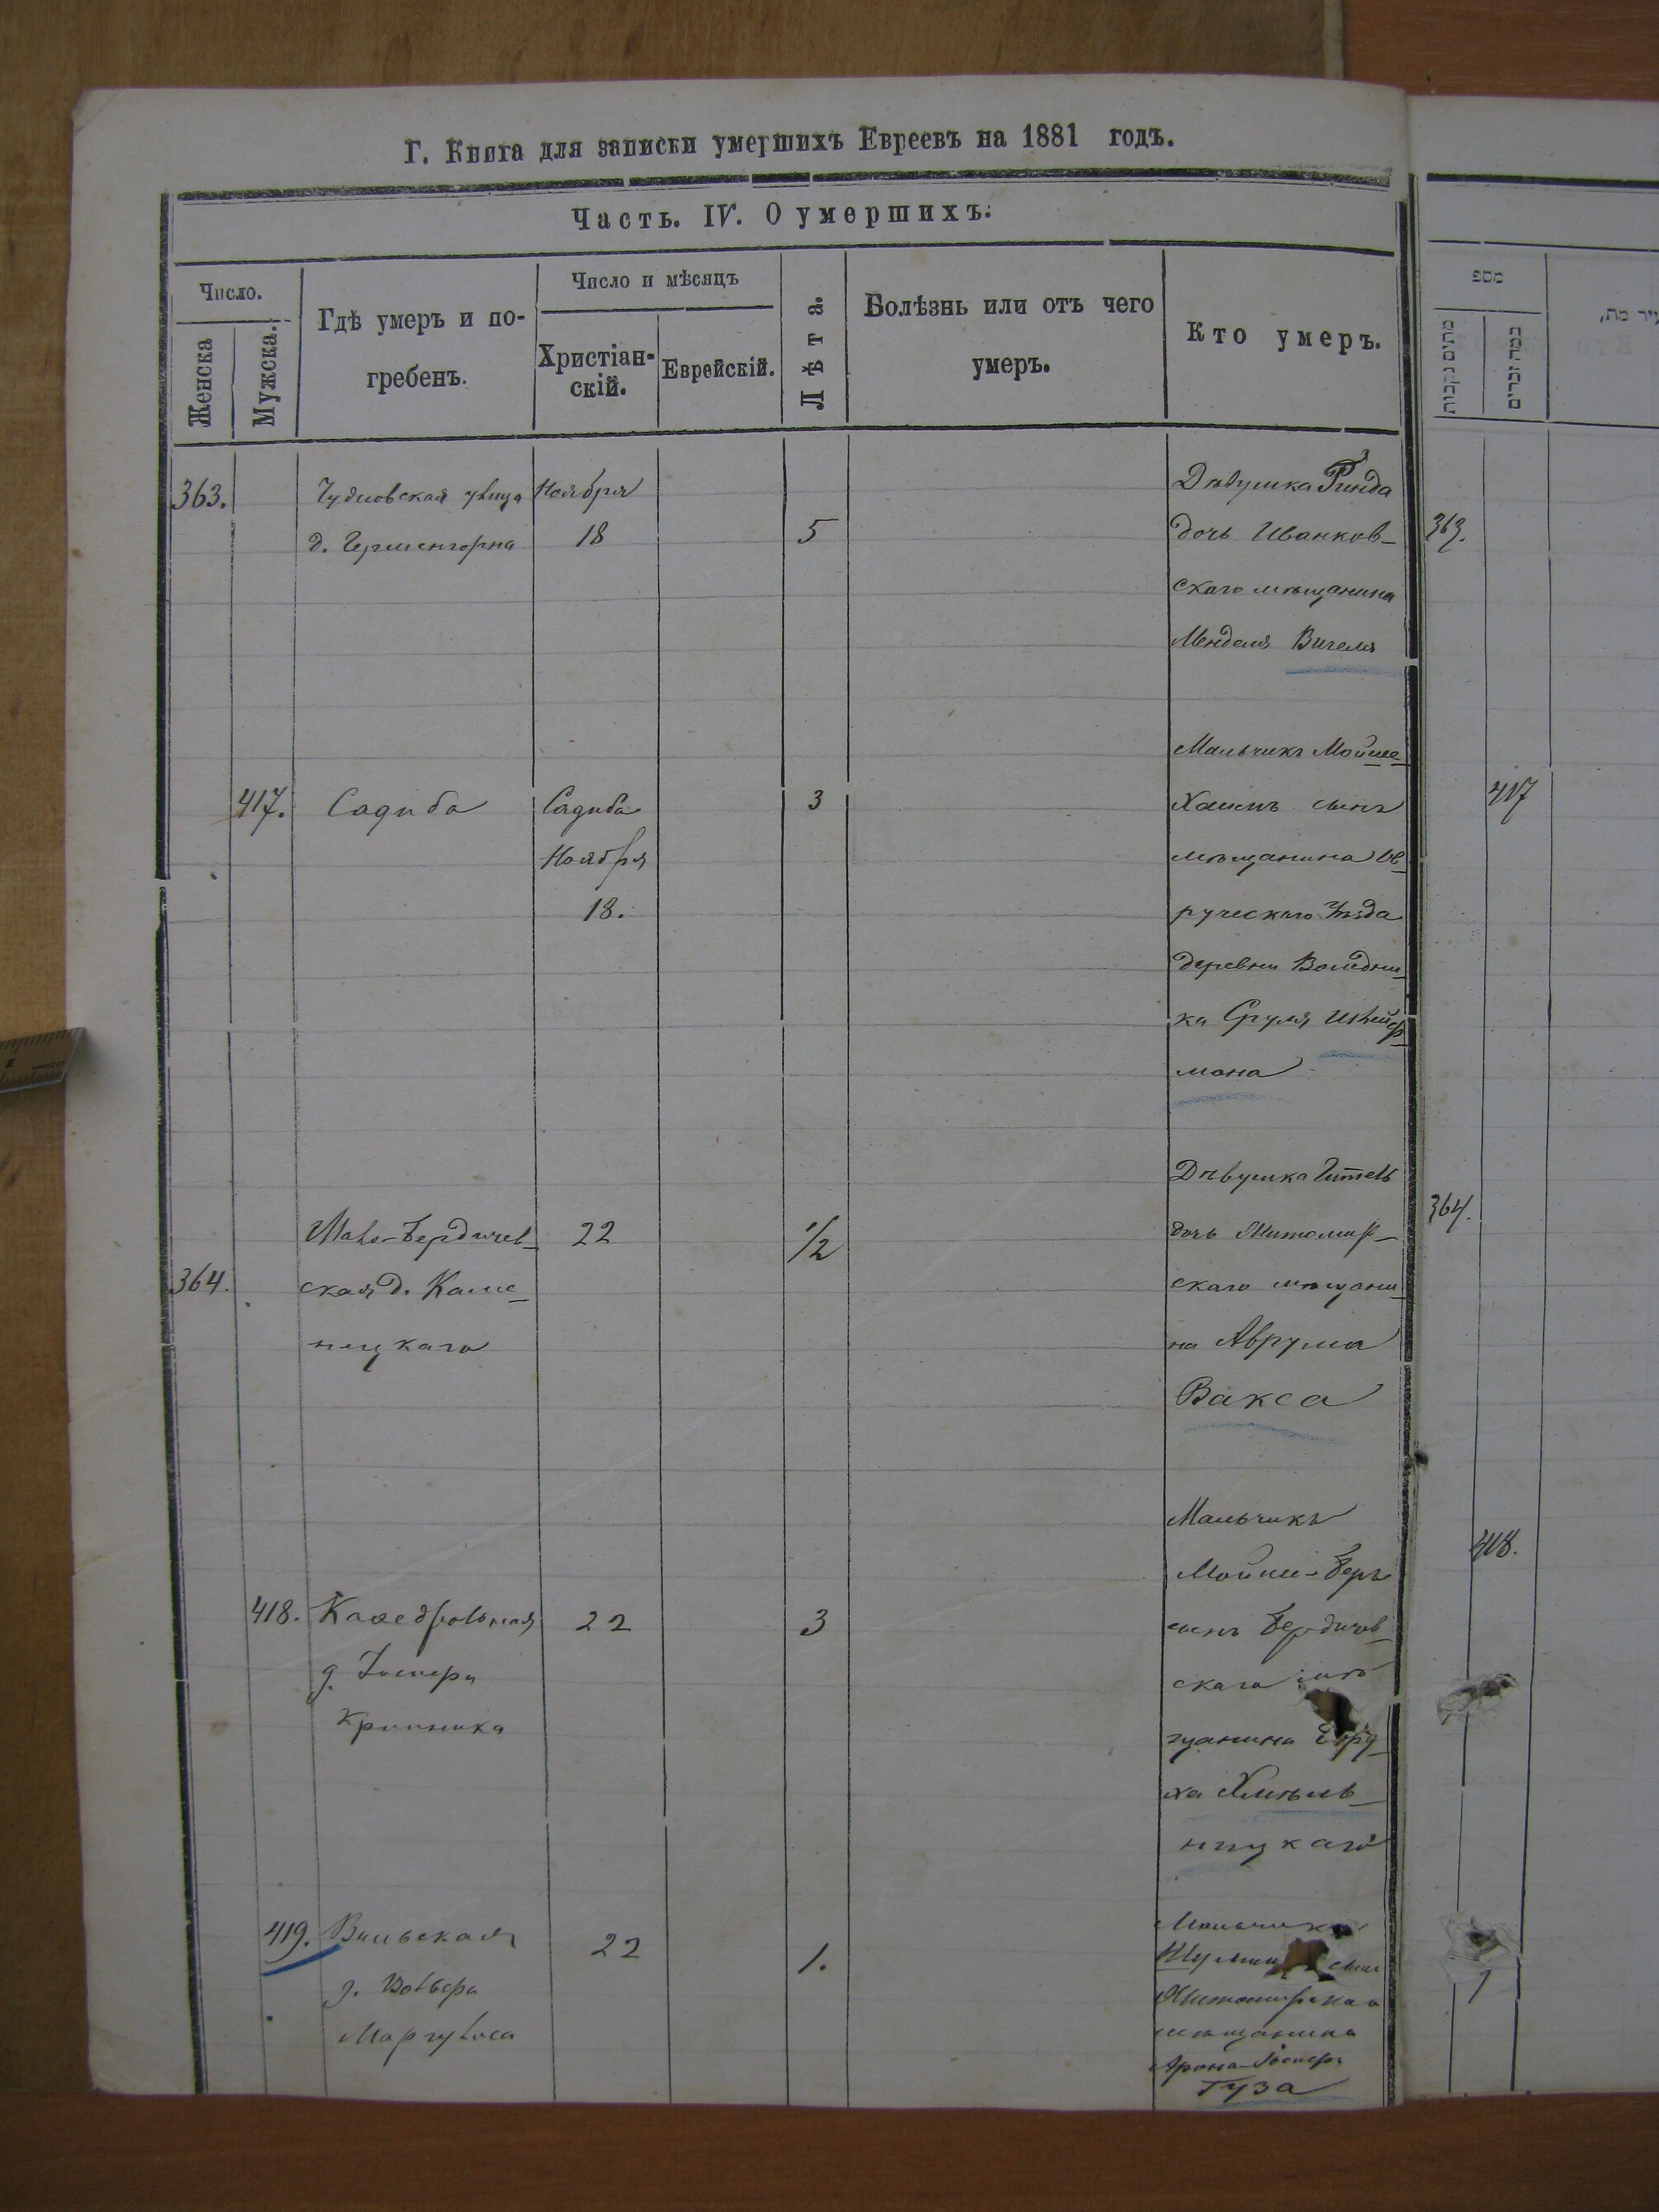 Г. Книга для записки умершихъ Евреевъ на 1881 годъ.
Часть. IV. О умершихъ:
Число.
Женска
Мужска.
Гдѣ умеръ и по-
гребенъ.
Число и мѣсяцъ
Христіан-
скій.
Еврейскій.
Лѣта.
Болѣзнь или отъ чего
умеръ.
Кто умеръ.
מספ
363.
Чудновская улица
д.
Ноября
18
5
Дѣвушка
дочь Иванков-
скаго мѣщанина
Менделя Вигеля
363.
417.
Садиба
Садиба
Ноября
18.
3
Мальчикъ Мойше
Хаимъ сынъ
мѣщанина Ов
ручскаго уѣзда
деревни Воледни-
ка Сруля Шнейд
мана
417
364.
Мало-Бердичев-
ская д. Каме-
ницкаго
22
1/2
Дѣвушка Гитель
дочь Житомир-
скаго мѣщани-
на Аврума
Вакса
364.
418.
Каѳедральная
д. Іосифа
22
3
Мальчикъ
Мойше-Беръ
сынъ Бердичев-
скаго мѣ-
щанина Бору-
ха Хмѣль-
ницкаго
418.
419.
Вильская
д.
Маргулиса
22
1.
Мальчикъ
сынъ
Житомирскаго
мѣщанина
Арона-
Гуза